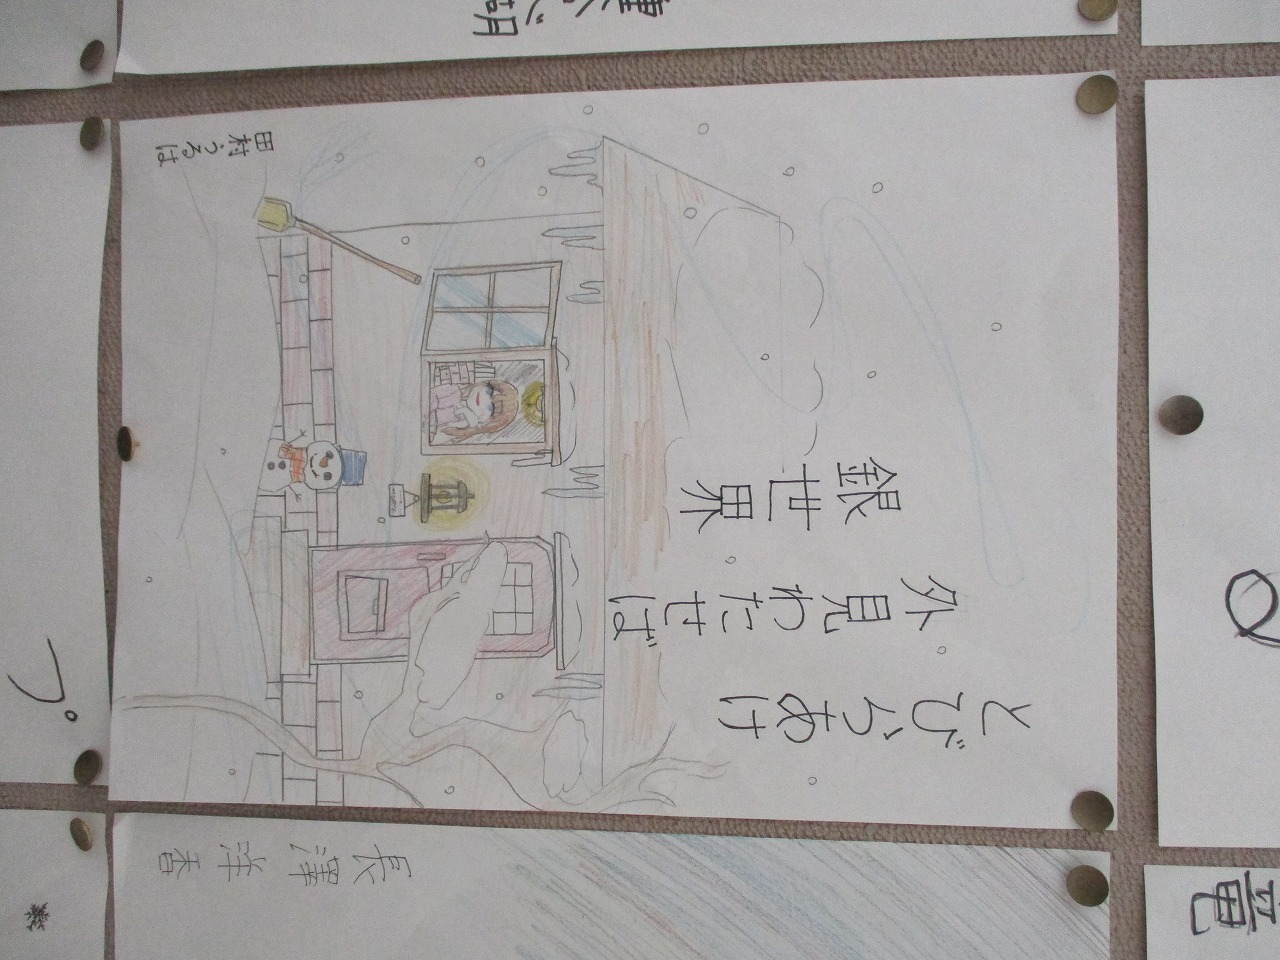 とびらあけ
外見わたせば
銀世界
田村うろは
長澤洋香